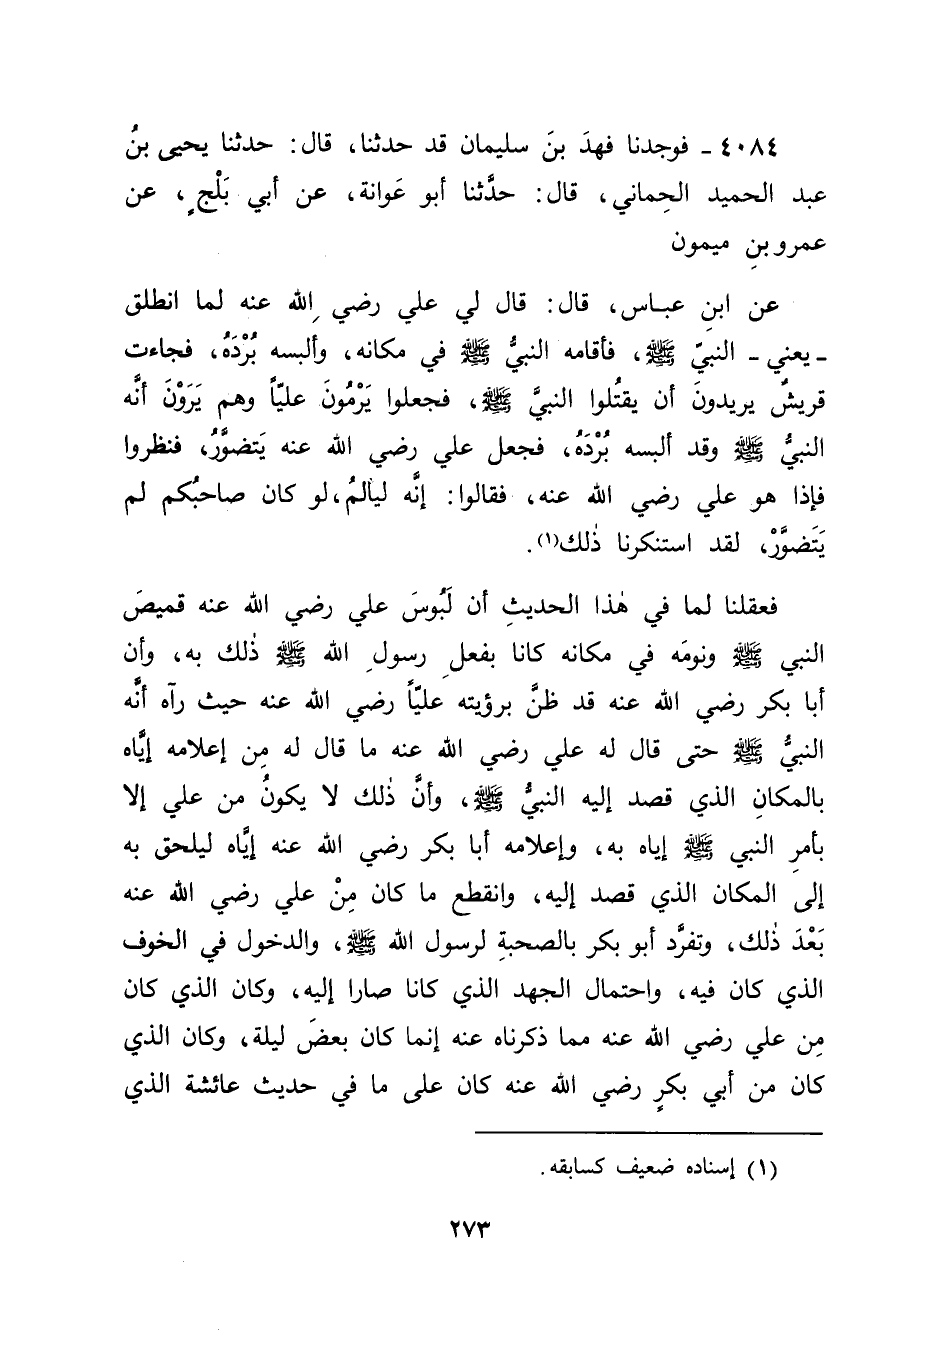 ٤٠٨٤ ـ فوجدنا فهدَ بنَ سليمان قد حدثنا، قال: حدثنا يحيى بنُ
عبد الحميد الحِماني، قال: حدَّثنا أبو عَوانة، عن أبي بَلْجٍ، عن
عمرو بنِ ميمون
عن ابنِ عباس، قال: قال لي علي رضي الله عنه لما انطلق
ـ يعني ـ النبيّ ﷺ، فأقامه النبيُّ ﷺ في مكانه، وألبسه بُرْدَهُ، فجاءت
قريشٌ يريدونَ أن يقتُلوا النبيَّ ﷺ، فجعلوا يَرْمُونَ عليّاً وهم يَرَوْنَ أنَّه
النبيُّ ﷺ وقد ألبسه بُرْدَهُ، فجعل علي رضي الله عنه يَتضوَّرُ، فنظروا
فإذا هو علي رضي الله عنه، فقالوا: إنَّه ليألمُ، لو كان صاحبُكم لم
يَتَضوَّرْ، لقد استنكرنا ذٰلك(١).
فعقلنا لما في هٰذا الحديثِ أن لَبُوسَ علي رضي الله عنه قميصَ
النبي ﷺ ونومَه في مكانه كانا بفعلِ رسولِ الله ﷺ ذٰلك به، وأن
أبا بكر رضي الله عنه قد ظنَّ برؤيته عليّاً رضي الله عنه حيث رآه أنَّه
النبيُّ ﷺ حتى قال له علي رضي الله عنه ما قال له مِن إعلامه إيَّاه
بالمكانِ الذي قصد إليه النبيُّ ﷺ، وأنَّ ذٰلك لا يكونُ من علي إلا
بأمرِ النبي ﷺ إياه به، وإعلامه أبا بكر رضي الله عنه إيَّاه ليلحق به
إلى المكان الذي قصد إليه، وانقطع ما كان مِنْ علي رضي الله عنه
بَعْدَ ذٰلك، وتفرَّد أبو بكر بالصحبةِ لرسول الله ﷺ، والدخول في الخوف
الذي كان فيه، واحتمال الجهد الذي كانا صارا إليه، وكان الذي كان
مِن علي رضي الله عنه مما ذكرناه عنه إنما كان بعضَ ليلة، وكان الذي
كان من أبي بكرٍ رضي الله عنه كان على ما في حديث عائشة الذي
(١) إسناده ضعيف كسابقه.
٢٧٣